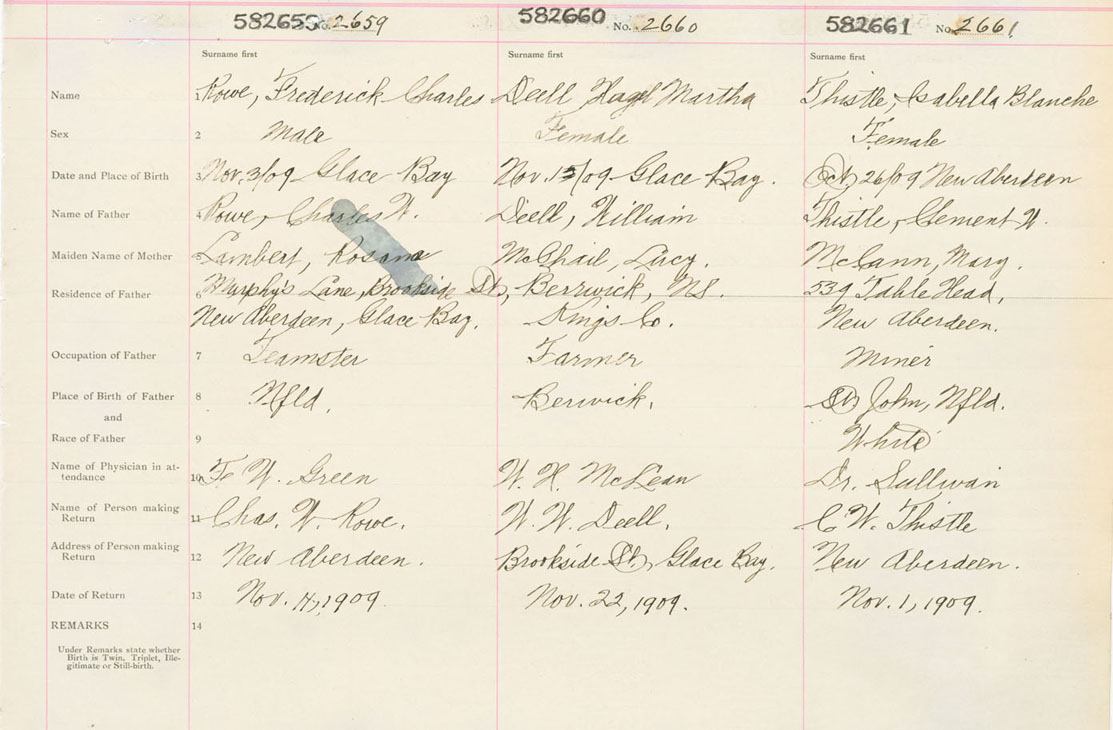 582659 No. 2659 582660 No. 2660 582661 No. 2661
Surname first Surname first Surname first
Name 1 Rowe, Frederick Charles Deell Hazel Martha Thistle, Isabella Blanche
Sex 2 Male Female Female
Date and Place of Birth 3 Nov. 3/09 Glace Bay Nov. 15/09 Glace Bay. Oct 26/09 New Aberdeen
Name of Father 4 Rowe, Charles W. Deell, William Thistle, Clement W.
Maiden Name of Mother 5 Lambert, Rosanna McPhail, Lucy. McCann, Mary.
Residence of Father 6 Murphy's Lane, Brookside St, Berwick, NS. 539 Table Head,
New Aberdeen, Glace Bay. Kings Co. New Aberdeen.
Occupation of Father 7 Teamster Farmer Miner
Place of Birth of Father 8 Nfld. Berwick. St John, Nfld.
and
Race of Father 9 White
Name of Physician in at- 10 W. Green W. H. McLean Dr. Sullivan
tendance
Name of Person making 11 Chas. W. Rowe. W. W. Deell. C W. Thistle
Return
Address of Person making 12 New Aberdeen. Brookside St. Glace Bay. New Aberdeen.
Return
Date of Return 13 Nov. 4, 1909 Nov. 22, 1909. Nov. 1, 1909.
REMARKS 14
Under Remarks state whether
Birth is Twin, Triplet, Ille-
gitimate or Still-birth.